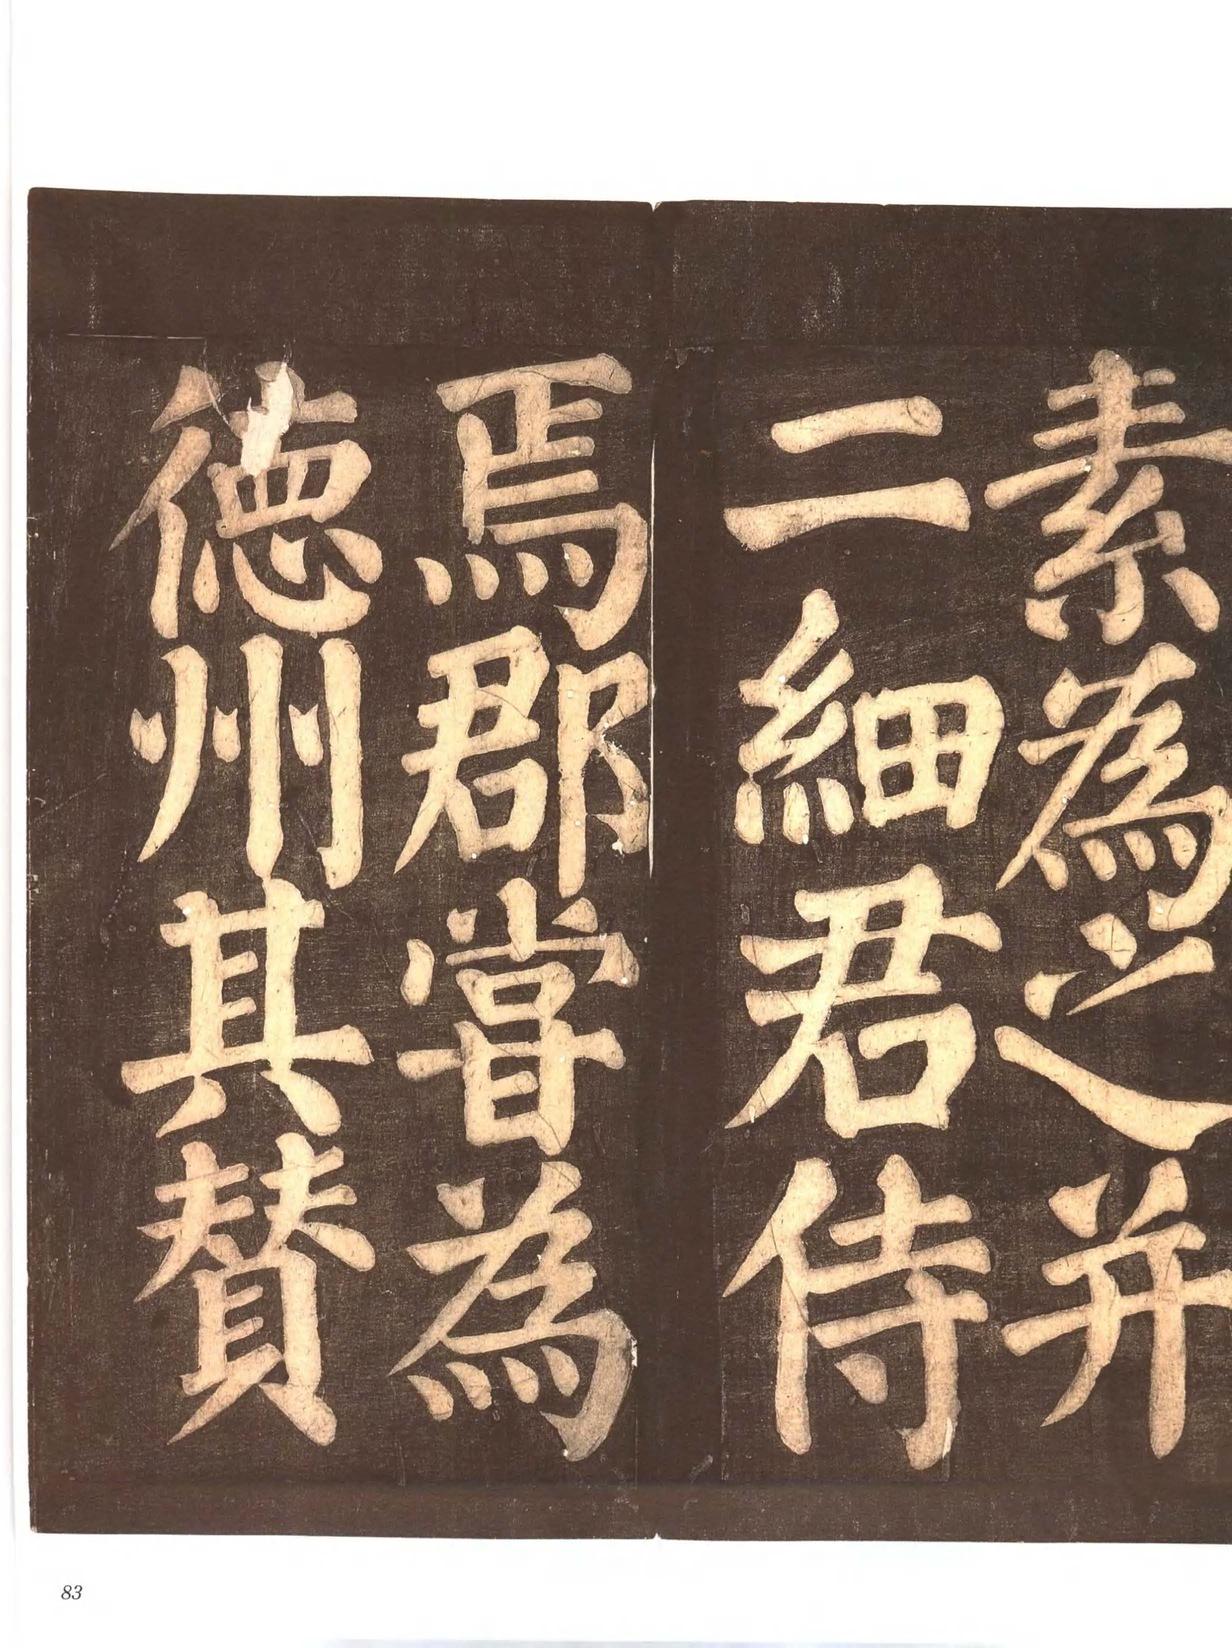 素為之并
二細君侍
焉郡嘗為
德州其賛
83